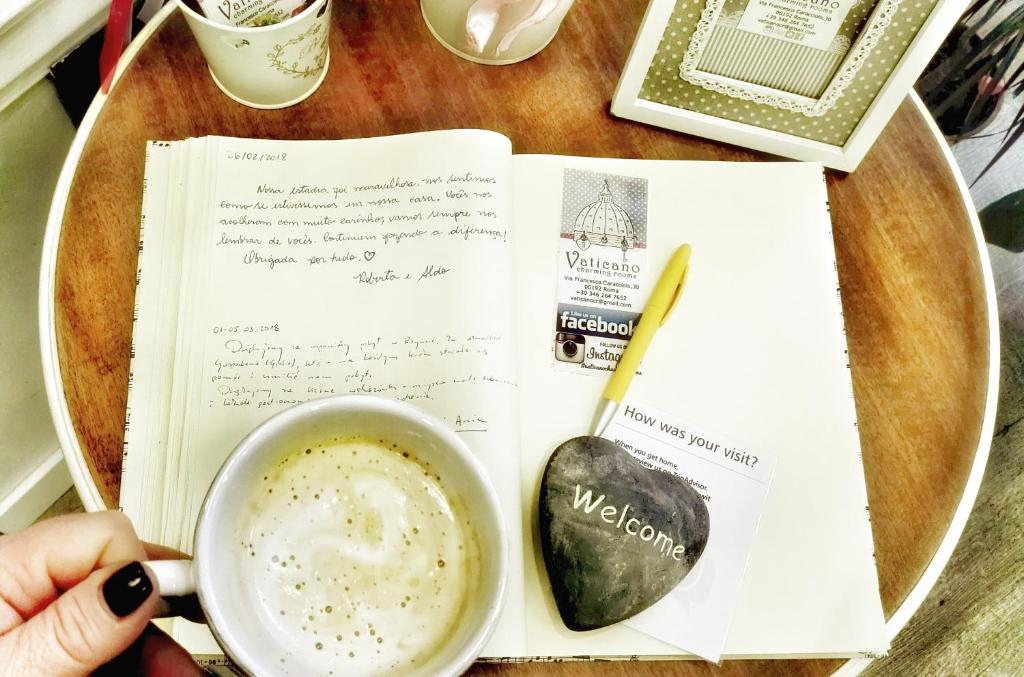 Vaticano
charming
Via Francesco Caracciolo,30
00192 Roma
+39 346 264 7652
26/02/2018
Nossa estadia foi maravilhosa, nos sentimos
como se estivessemos em nossa casa. Vocês nos
acolheram com muito carinho, vamos sempre nos
lembrar de vocês. Continuem fazendo a diferença!
Obrigada por tudo. ♡
Roberta e Aldo
01-05.03.2018
Dziękujemy za wspaniały pobyt w Rzymie. Za
pomóc i umilić nam pobyt.
Dziękujemy za liczne wskazówki
i
Ania
Vaticano
charming rooms
Via Francesco Caracciolo,30
00192 Roma
+39 346 264 7652
vaticanocr@gmail.com
Like us on
facebook
FOLLOW US ON
How was your visit?
When you get home,
review us on TripAdvisor.
Welcome